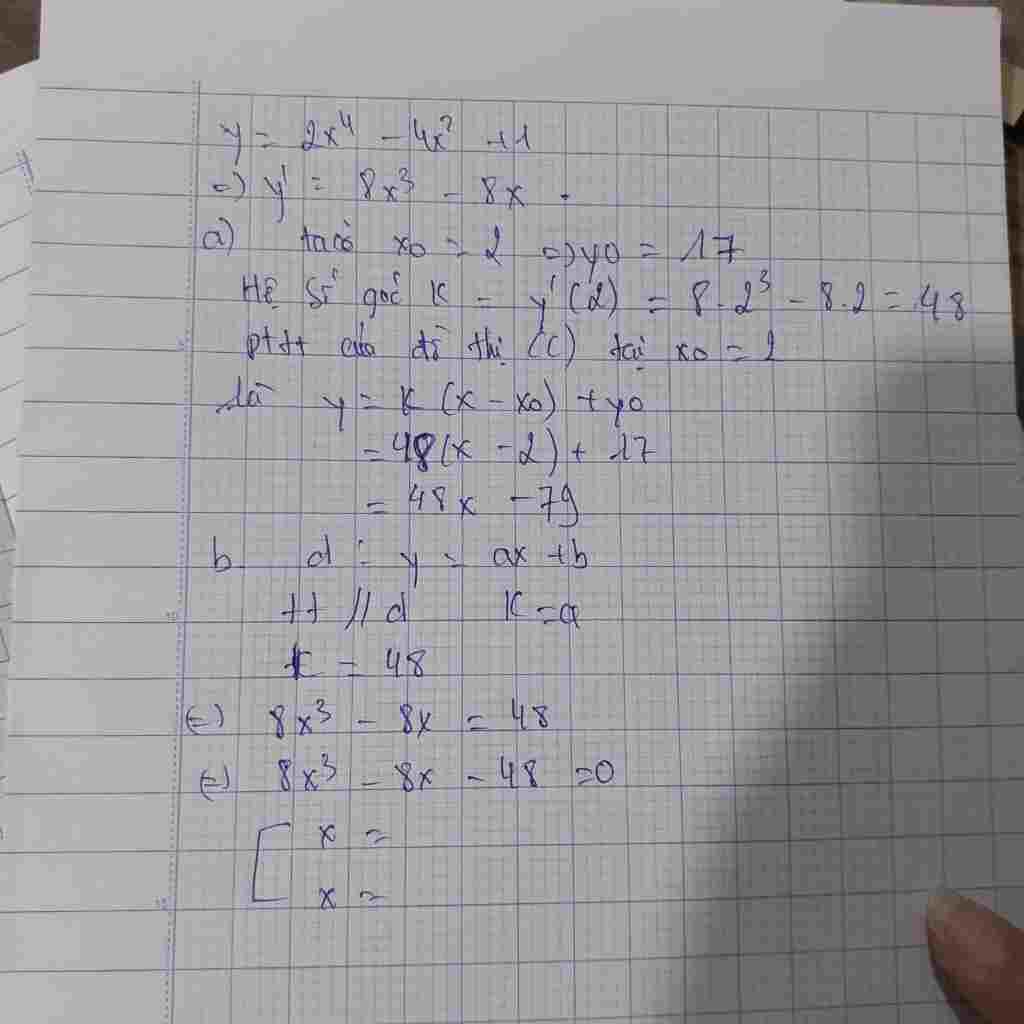 y = 2x⁴ - 4x² + 1
=) y' = 8x³ - 8x.
a) ta có x0 = 2 =) y0 = 17
Hệ số góc K = y'(2) = 8.2³ - 8.2 = 48
pttt của đồ thị (C) tại x0 = 2
là y = K (x - x0) + y0
= 48(x - 2) + 17
= 48x - 79
b d : y = ax + b
tt // d K = a
K = 48
(=) 8x³ - 8x = 48
(=) 8x³ - 8x - 48 = 0
[ x =
x =